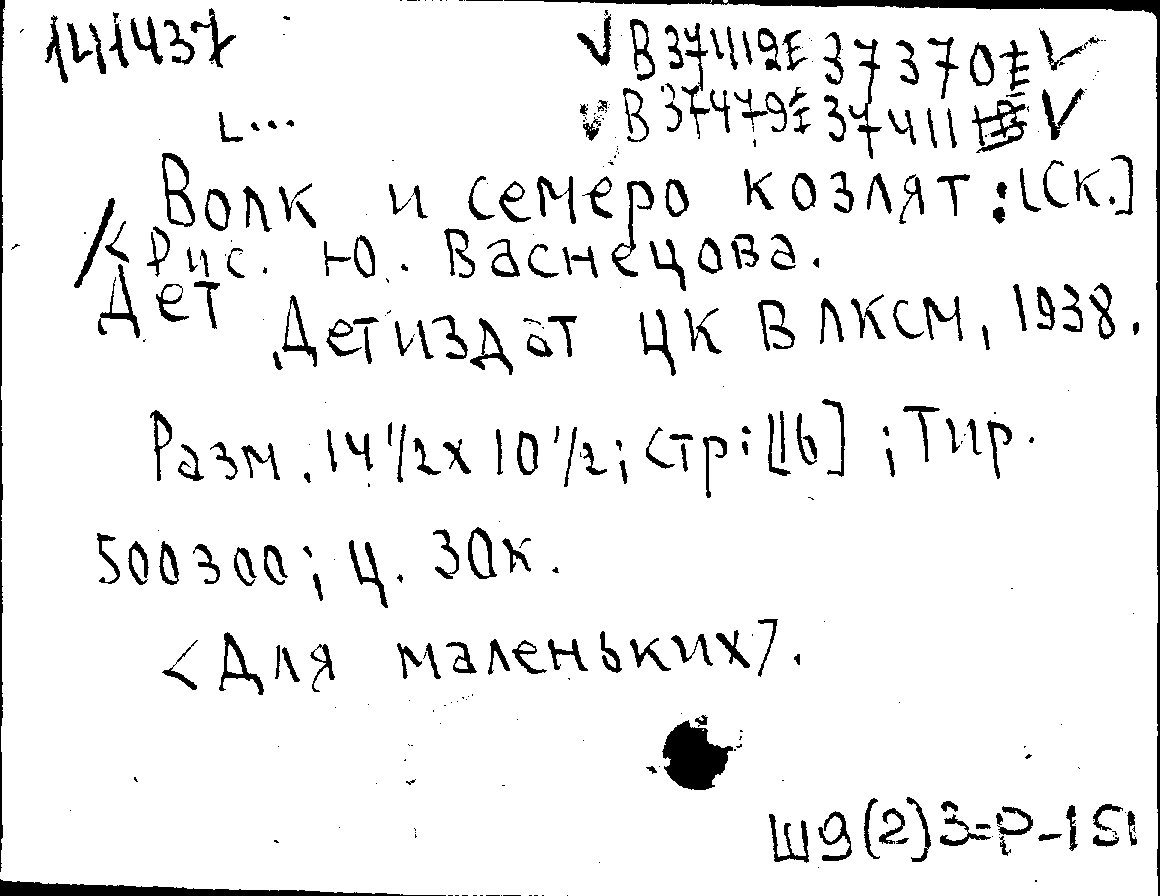 141437 В 374112Е 37370Е
L... В 37479Е 37411
Волк и семеро козлят : [Ск.]
/< Рис. Ю. Васнецова.
Дет Детиздат ЦК ВЛКСМ, 1938.
Разм. 14 1/2 x 10 1/2; стр: [16] ; Тир.
500300; ц. 30к.
<Для маленьких>.
Ш9(2)3=Р-1 51